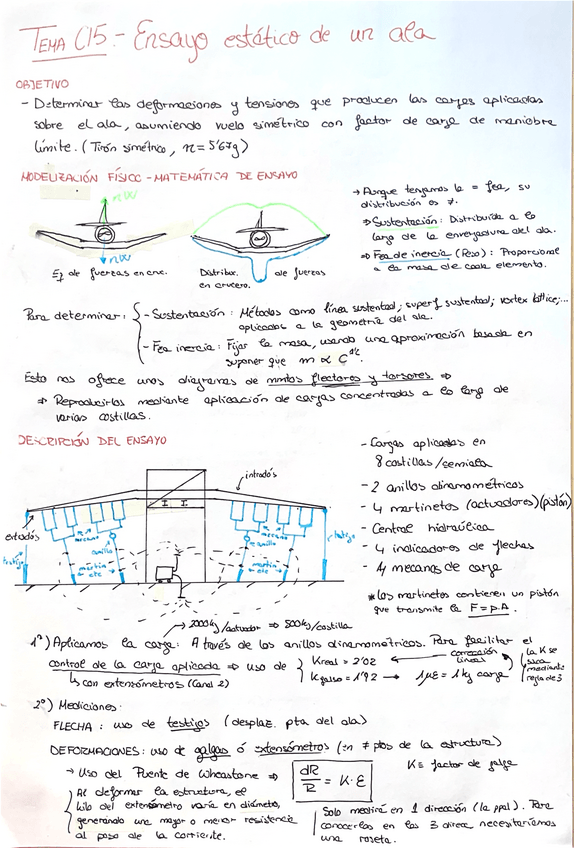 TEMA C15.- Ensayo estático de un ala
OBJETIVO
- Determinar las deformaciones y tensiones que producen las cargas aplicadas
sobre el ala, asumiendo vuelo simétrico con factor de carga de maniobra
límite. (Tirón simétrico, n = 5'67g)
MODELIZACIÓN FÍSICO-MATEMÁTICA DE ENSAYO
nW
nW
Ej de fuerzas en cruc.
Distribuc. de fuerzas
en crucero.
→ Aunque tengamos la = fza, su
distribución es ≠.
⇒ Sustentación: Distribuida a lo
largo de la envergadura del ala.
⇒ Fza de inercia (Peso): Proporcional
a la masa de cada elemento.
Para determinar: { - Sustentación: Métodos como línea sustentad; superf sustentad; vortex lattice;...
aplicados a la geometría del ala.
- Fza inercia: Fijar la masa, usando una aproximación basada en
suponer que m ∝ C
Esto nos ofrece unos diagramas de mmtos flectores y torsores ⇒
⇒ Reproducirlos mediante aplicación de cargas concentradas a lo largo de
varias costillas.
DESCRIPCIÓN DEL ENSAYO
intradós
extradós
testigo
mecano
anillo
martin
etc
mecano
anillo
martin
etc
testigo
2000kg/actuador ⇒ 500kg/costilla
- Cargas aplicadas en
8 costillas/semiala
- 2 anillos dinamométricos
- 4 martinetos (actuadores)(pistón)
- Central hidráulica
- 4 indicadores de flechas
- 4 mecanos de carga
* Los martinetos contienen un pistón
que transmite la F=p.A.
1º) Aplicamos la carga: A través de los anillos dinamométricos. Para facilitar el
control de la carga aplicada ⇒ uso de { Kreal = 2'02 corrección lineal
↳ con extensómetros (Canal 2) Kfalso = 1'92 → 1με = 1kg carga
la K se
saca
mediante
regla de 3
2º) Mediciones:
FLECHA: uso de testigos (desplaz. pta del ala)
DEFORMACIONES: uso de galgas ó extensómetros (en ≠ ptos de la estructura)
→ Uso del Puente de Wheatstone ⇒ dR/R = K·ε K ≡ factor de galga
Al deformar la estructura, el
hilo del extensómetro varía en diámetro,
generando una mayor o menor resistencia
al paso de la corriente.
Solo medirá en 1 dirección (la ppal). Para
conocerlas en las 3 direcc necesitaríamos
una roseta.